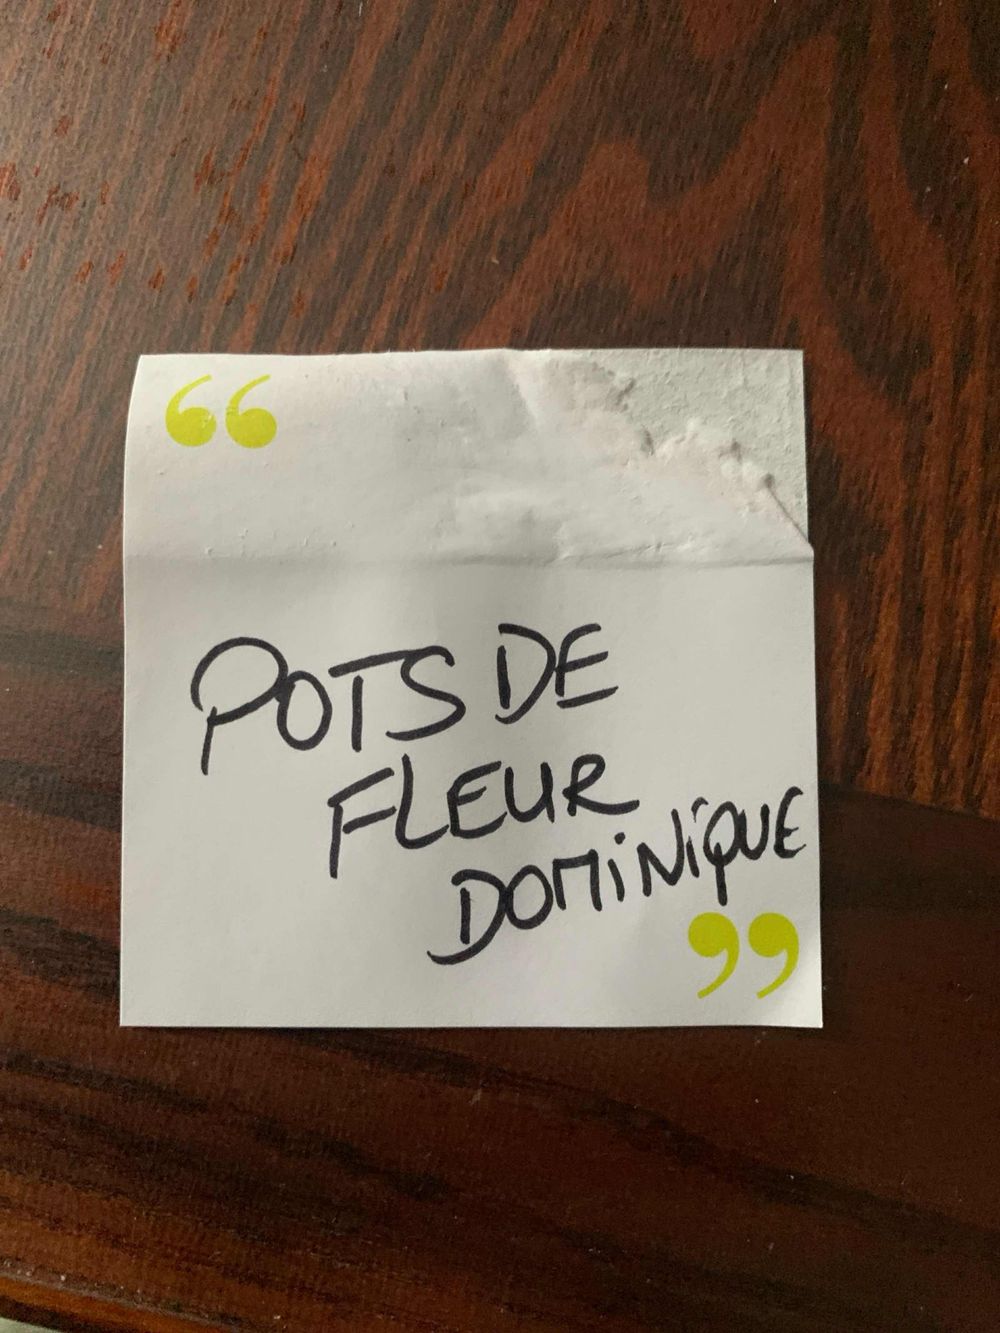 “
POTS DE
FLEUR
DOMiNiQUE
”